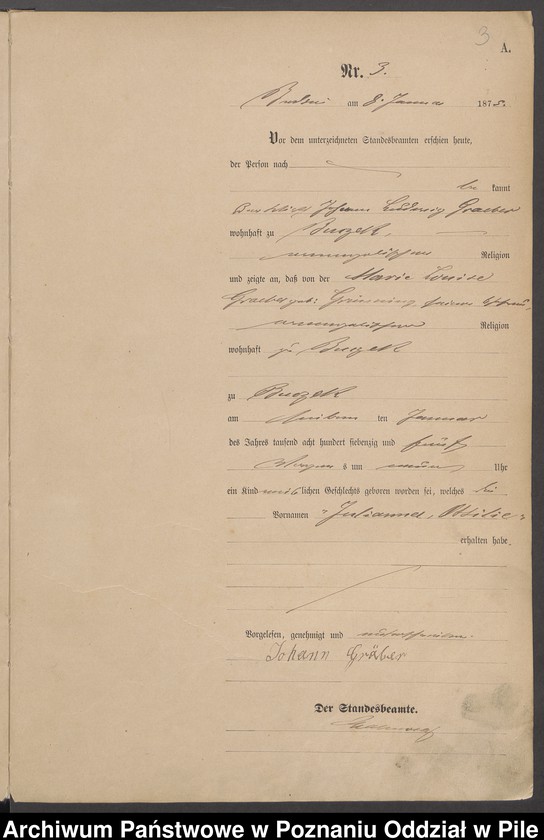 3
A.
Nr. 3.
am 8. Januar 1875.
Vor dem unterzeichneten Standesbeamten erschien heute,
der Person nach
be kannt
Johann Ludwig Graeber
wohnhaft zu
evangelischer Religion
und zeigte an, daß von der Marie Louise
Graeber geb: seiner Ehefrau,
evangelischer Religion
wohnhaft zu
zu
am ten Januar
des Jahres tausend acht hundert siebenzig und fünf
Morgens um neun Uhr
ein Kind weiblichen Geschlechts geboren worden sei, welches die
Vornamen "Julianna, Ottilie"
erhalten habe.
Vorgelesen, genehmigt und unterschrieben.
Johann Gräber
Der Standesbeamte.
Archiwum Państwowe w Poznaniu Oddział w Pile